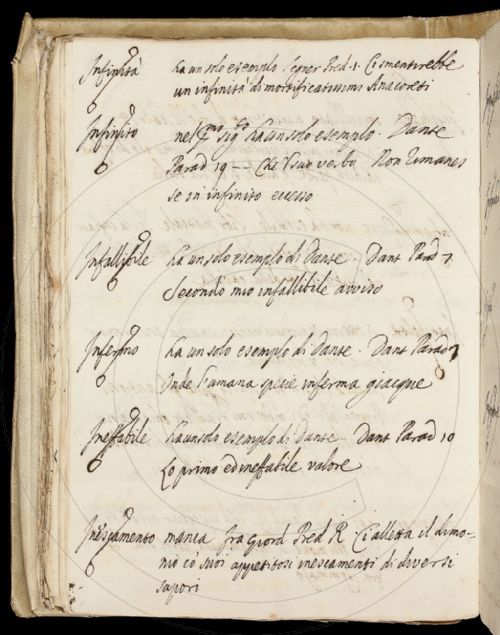 Infinità ha un solo esempio. Segner Pred. 1. Ci smentirebbe
un infinità di mortificatissimi Anacoreti
Infinito nel pmo sigto ha un solo esempio. Dante
Parad 19 -- Che 'l suo verbo Non rimanes
se in infinito eccesso
Infallibile ha un solo esempio di Dante. Dant Parad 7
Secondo mio infallibile avviso
Infermo ha un solo esempio di Dante. Dant Parad 7
Onde l'umana spezie inferma giacque
Ineffabile ha un solo esempio di Dante. Dant Parad 10
Lo primo ed ineffabile valore
Inescamento manca Fra Giord Pred R. Ci alletta il dimo-
nio co' suoi appetitosi inescamenti di diversi
sapori